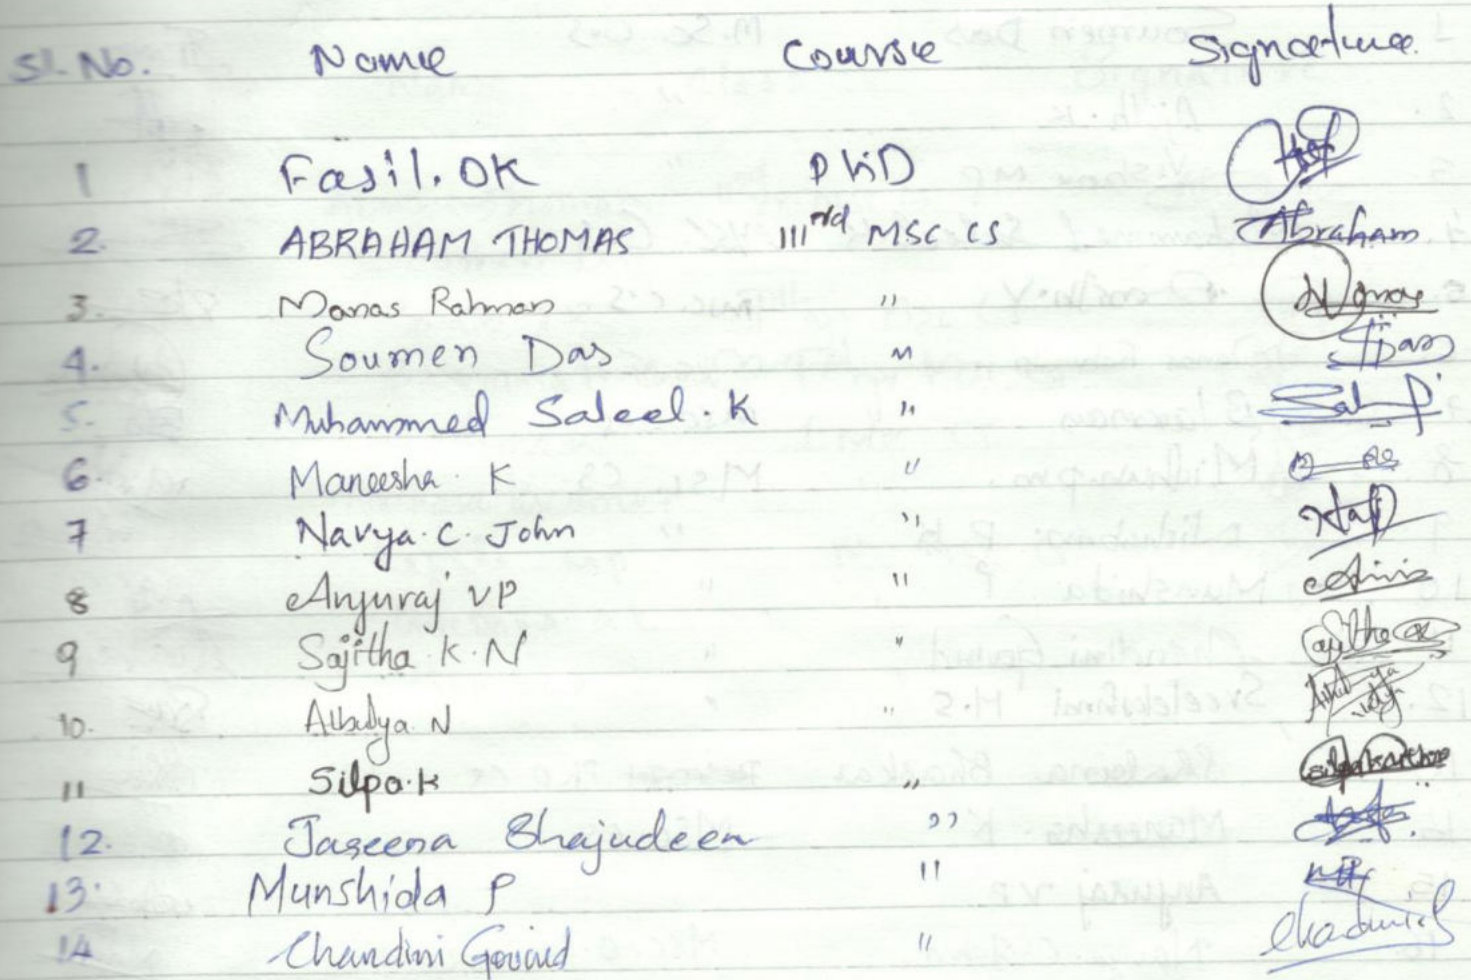 Sl. No. Name Course Signature
1 Fasil. OK PhD
2. ABRAHAM THOMAS IIIrd MSC CS Abraham
3. Manas Rahman " Manas
4. Soumen Das " SDas
5. Muhammed Saleel. K "
6. Maneesha. K "
7 Navya. C. John "
8 Anjuraj VP "
9 Sajitha. K. N "
10. N
11 Silpa. K "
12. Jaseena Shajudeen "
13. Munshida P "
14 Chandini Govind "